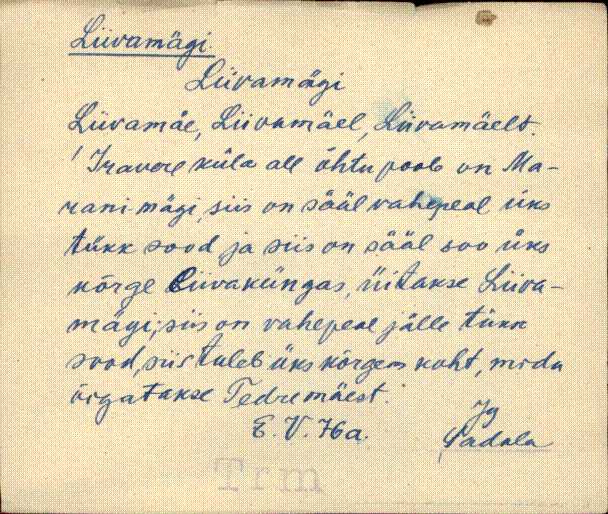 Liivamägi.
Liivamägi
Liivamäe, Liivamäel, Liivamäelt.
Iravere küla all õhtu pool on Ma-
rani mägi, siis on sääl vahepeal üks
tükk sood ja siis on sääl soo üks
kõrge liivaküngas, üitakse Liiva-
mägi, siis on vahepeal jälle tükk
sood, siis tuleb üks kõrgem koht, mida
õigatakse Tedremäest.
E. V. 76 a. Jg
Ladala
Trm